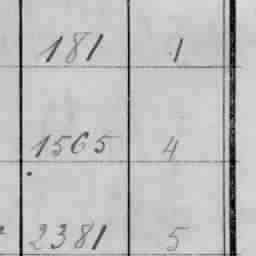 181 1
1565 4
2381 5